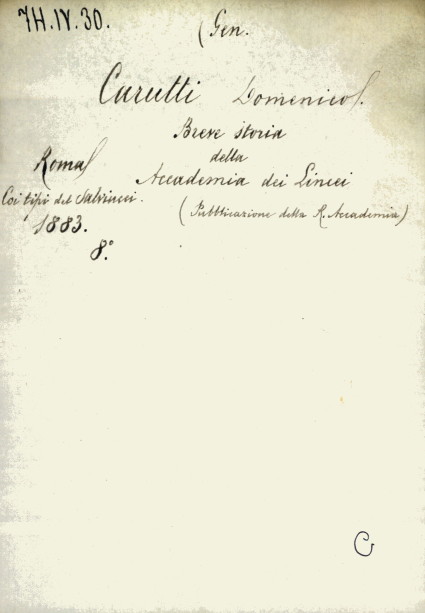 7H.IV.30.
(Gen.
Carutti Domenico.
Breve storia
della
Accademia dei Lincei
(Pubblicazione della R. Accademia)
Roma
Coi tipi del Salviucci.
1883.
8°.
G